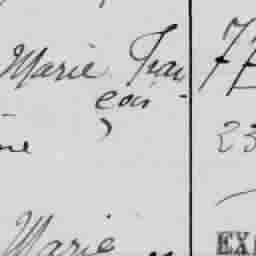 Marie Fran
çois -
ne
23
Marie
EX